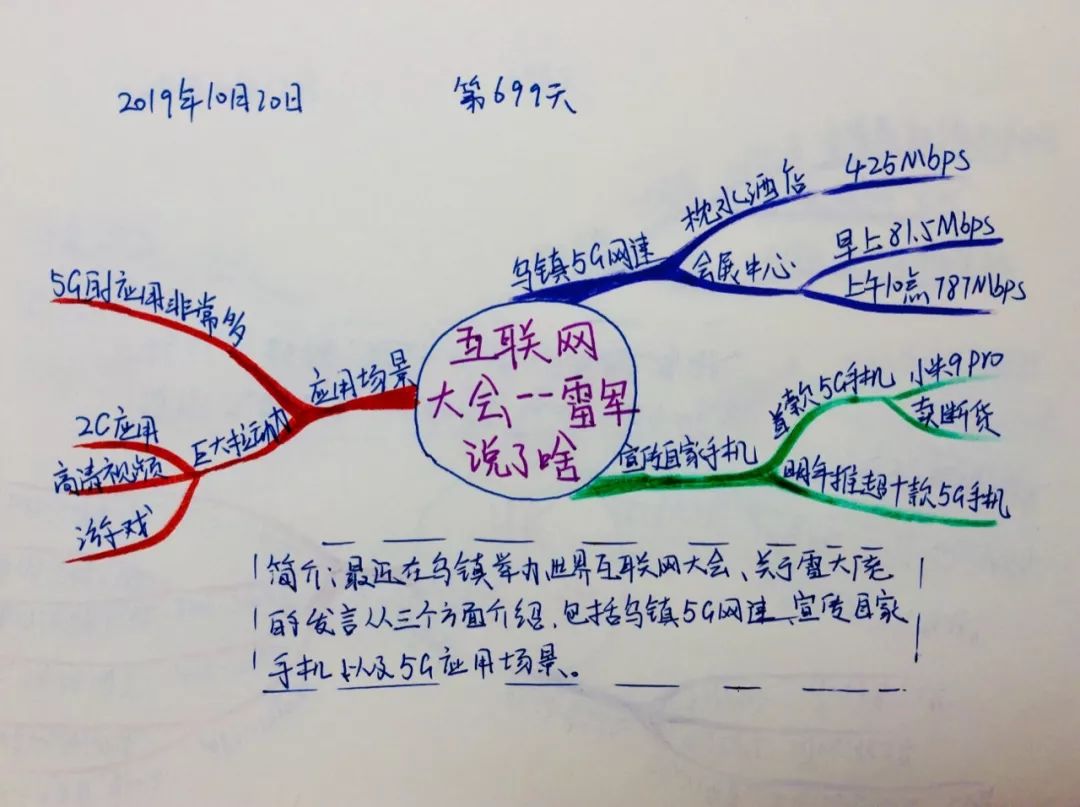 2019年10月20日
第699天
互联网
大会--雷军
说了啥
乌镇5G网速
枕水酒店
425Mbps
会展中心
早上81.5Mbps
上午10点787Mbps
宣传自家手机
首款5G手机
小米9pro
卖断货
明年推超十款5G手机
应用场景
5G时应用非常多
巨大拉动力
2C应用
高清视频
游戏
简介:最近在乌镇举办世界互联网大会、关于雷大佬
的发言从三个方面介绍,包括乌镇5G网速、宣传自家
手机以及5G应用场景。